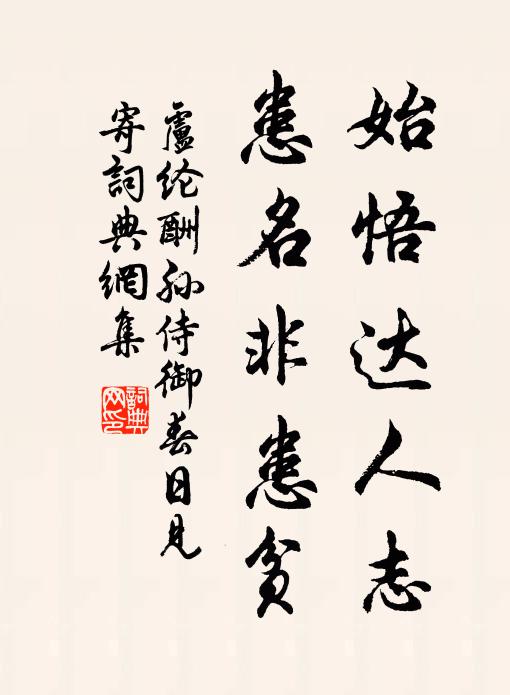 始悟达人志
患名非患贫
盧纶酬孙侍御春日见
寄詞典網集
詞典
网印